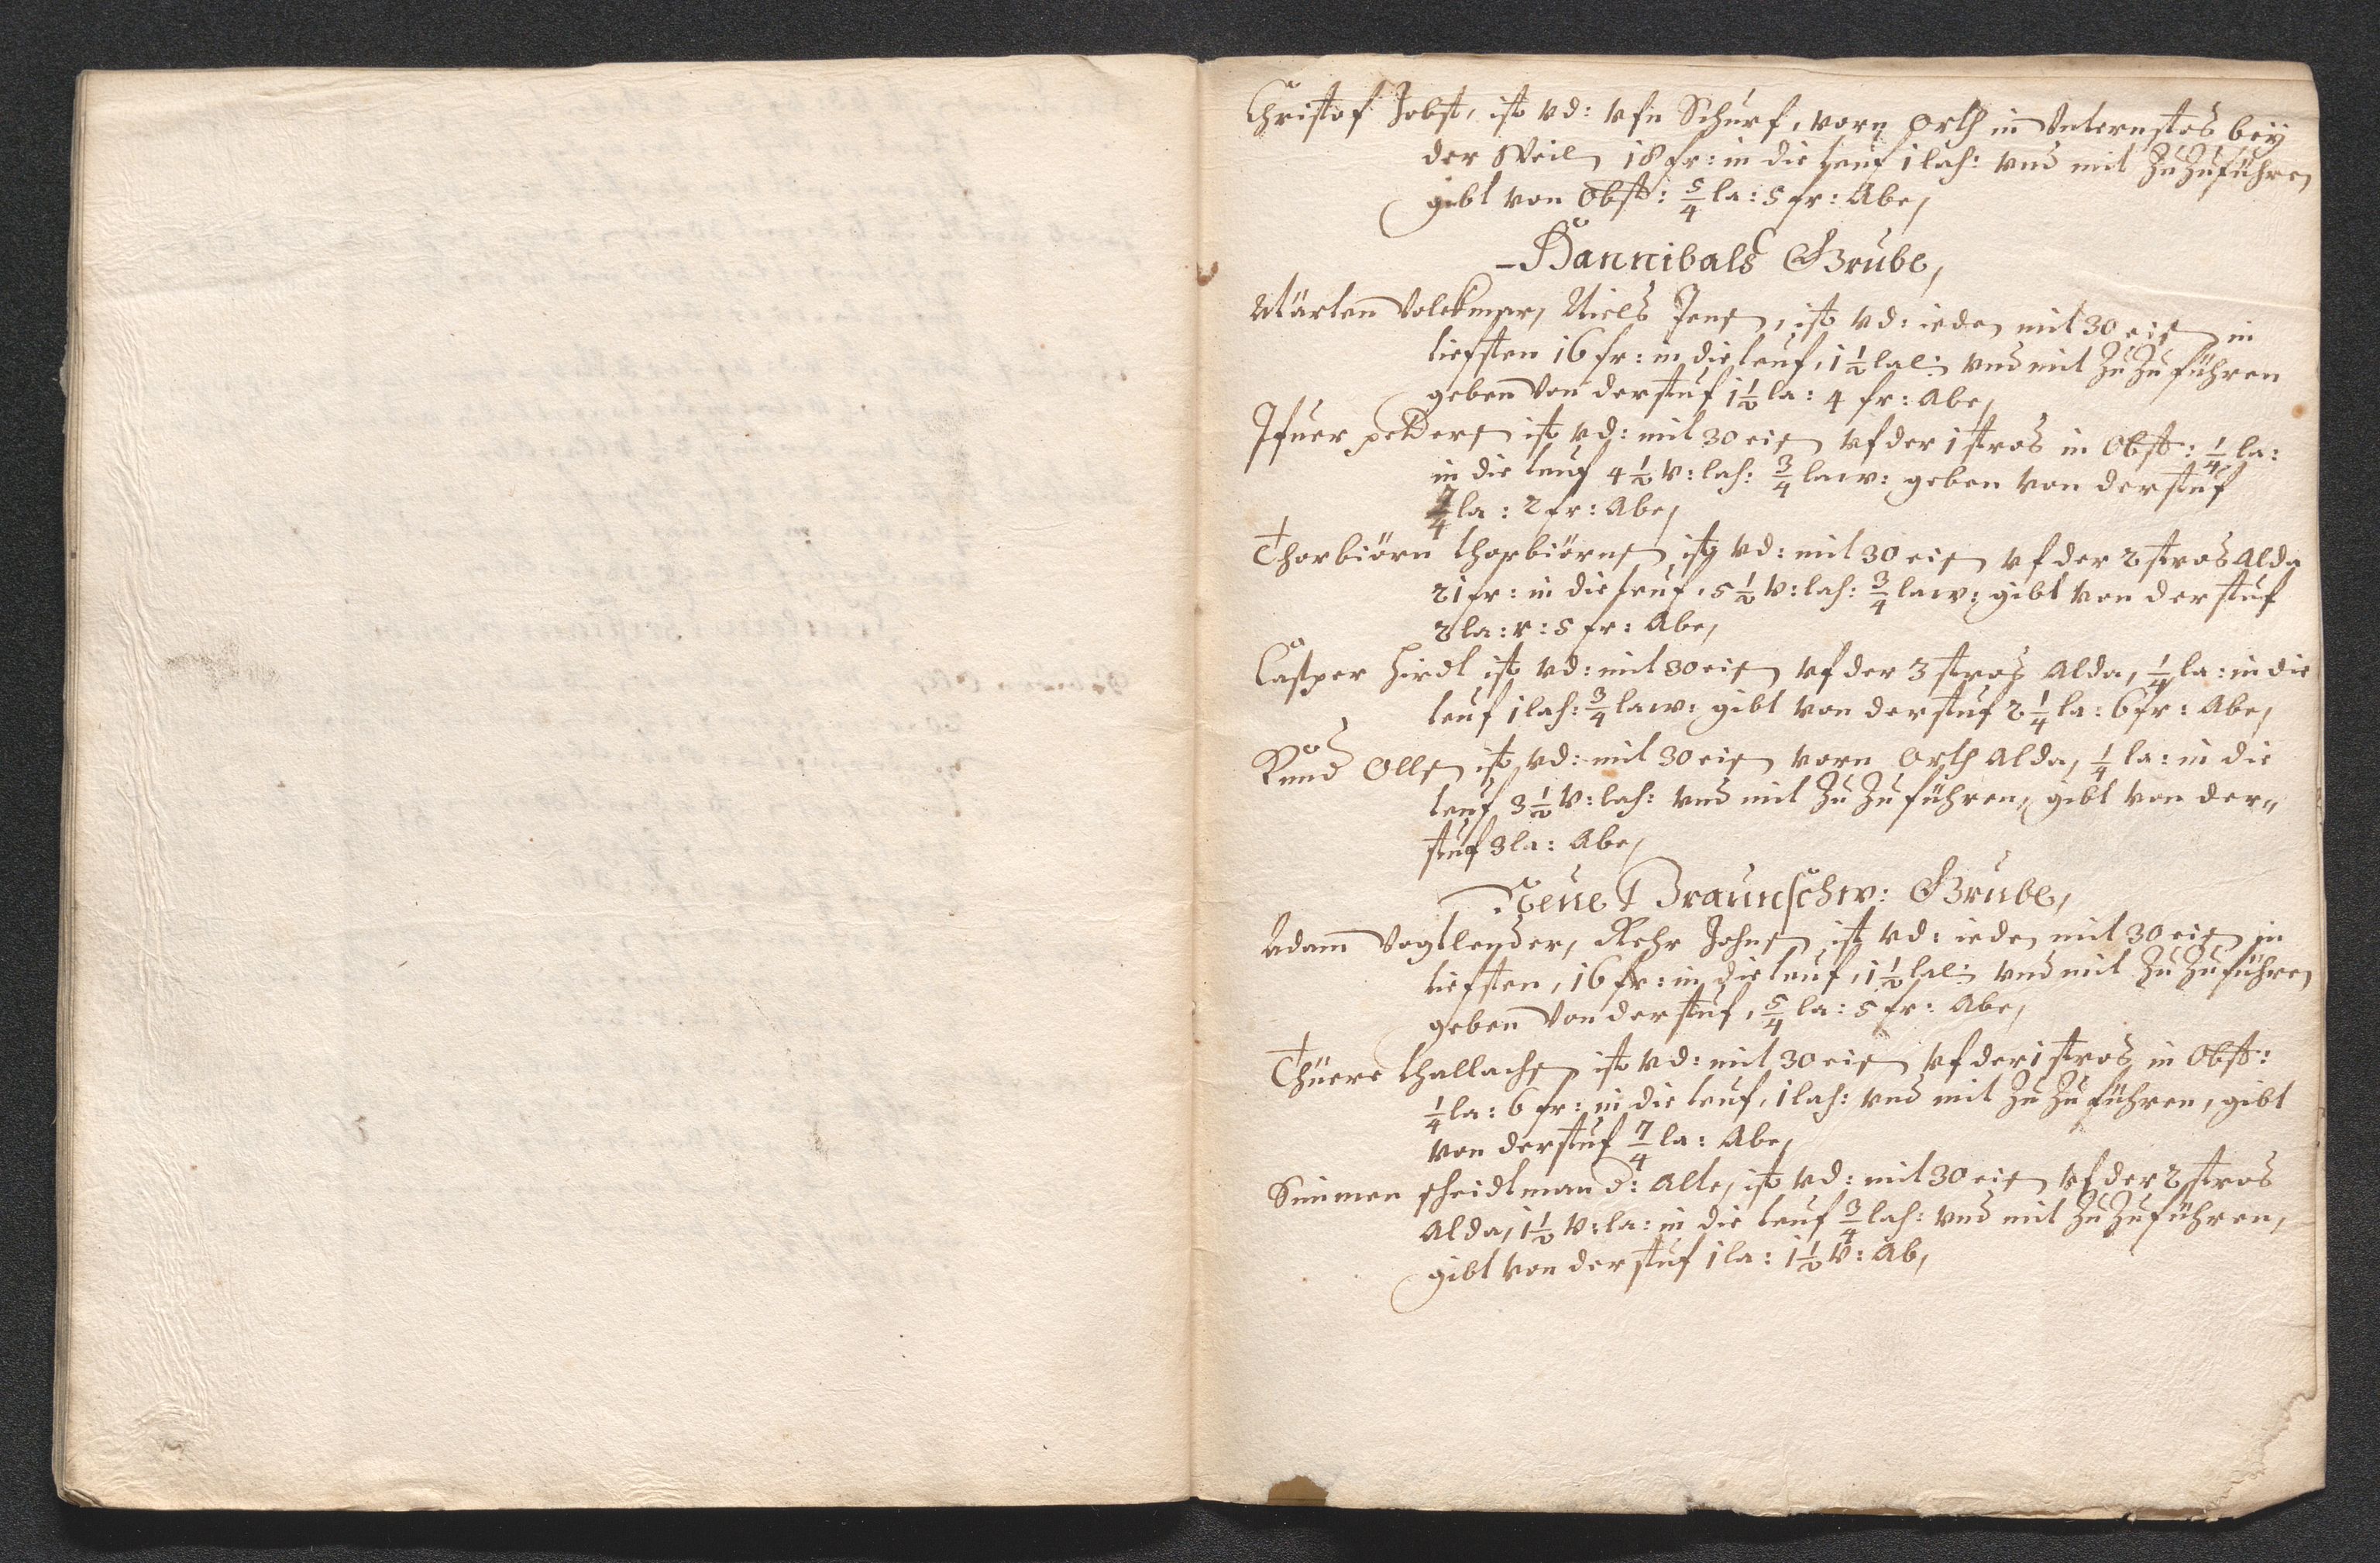 Christof Jobst, ist vd: vfn Schurf, vorn Orth in Unternstos bey
der Weil, 18 fr: in die leuf 1 lach: vnd mit Zu Zuführen
gibt von Obst: 5/4 la: 5 fr: Abe,
Hannibals Grube,
Märten Volckmar, Niels Jens, ist vd: ieder mit 30 eis in
tiefsten 16 fr: in die leuf, 1 1/2 lac: vnd mit Zu Zu führen
geben von der stuf 1 1/2 la: 4 fr: Abe,
Ifuer peders ist vd: mit 30 eis vf der 1 stros in Obst: 1/4 la:
in die leuf 4 1/2 v: lach: 3/4 law: geben von der stuf
7/4 la: 2 fr: Abe,
Thorbiörn thorbiörns ist vd: mit 30 eis vf der 2 stros Alda
21 fr: in die leuf, 5 1/2 v: lach: 3/4 law: gibt von der stuf
2 la: v: 5 fr: Abe,
Casper Hirdt ist vd: mit 30 eis vf der 3 stros Alda, 1/4 la: in die
leuf 1 lach: 3/4 law: gibt von der stuf 2 1/4 la: 6 fr: Abe,
Knud Olls ist vd: mit 30 eis vorn Orth Alda, 1/4 la: in die
leuf 3 1/2 v: lach: vnd mit Zu Zu führen, gibt von der„
stuf 3 la: Abe,
Neue Braunschw: Grube,
Adam Vogtlender, Rehr Johns ist vd: ieder mit 30 eis in
tiefsten, 16 fr: in die leuf, 1 1/2 lac: vnd mit Zu Zuführen
geben von der stuf, 5/4 la: 5 fr: Abe,
Thuere thallachs ist vd: mit 30 eis vf der 1 stros in Obst:
1/4 la: 6 fr: in die leuf, 1 lach: vnd mit Zu Zu führen, gibt
von der stuf 7/4 la: Abe,
Simmen scheidtman d: Alte, ist vd: mit 30 eis vf der 2 stros
Alda, 1 1/2 v: la: in die leuf 3/4 lach: vnd mit Zu Zuführen,
gibt von der stuf 1 la: 1 1/2 v: Ab,